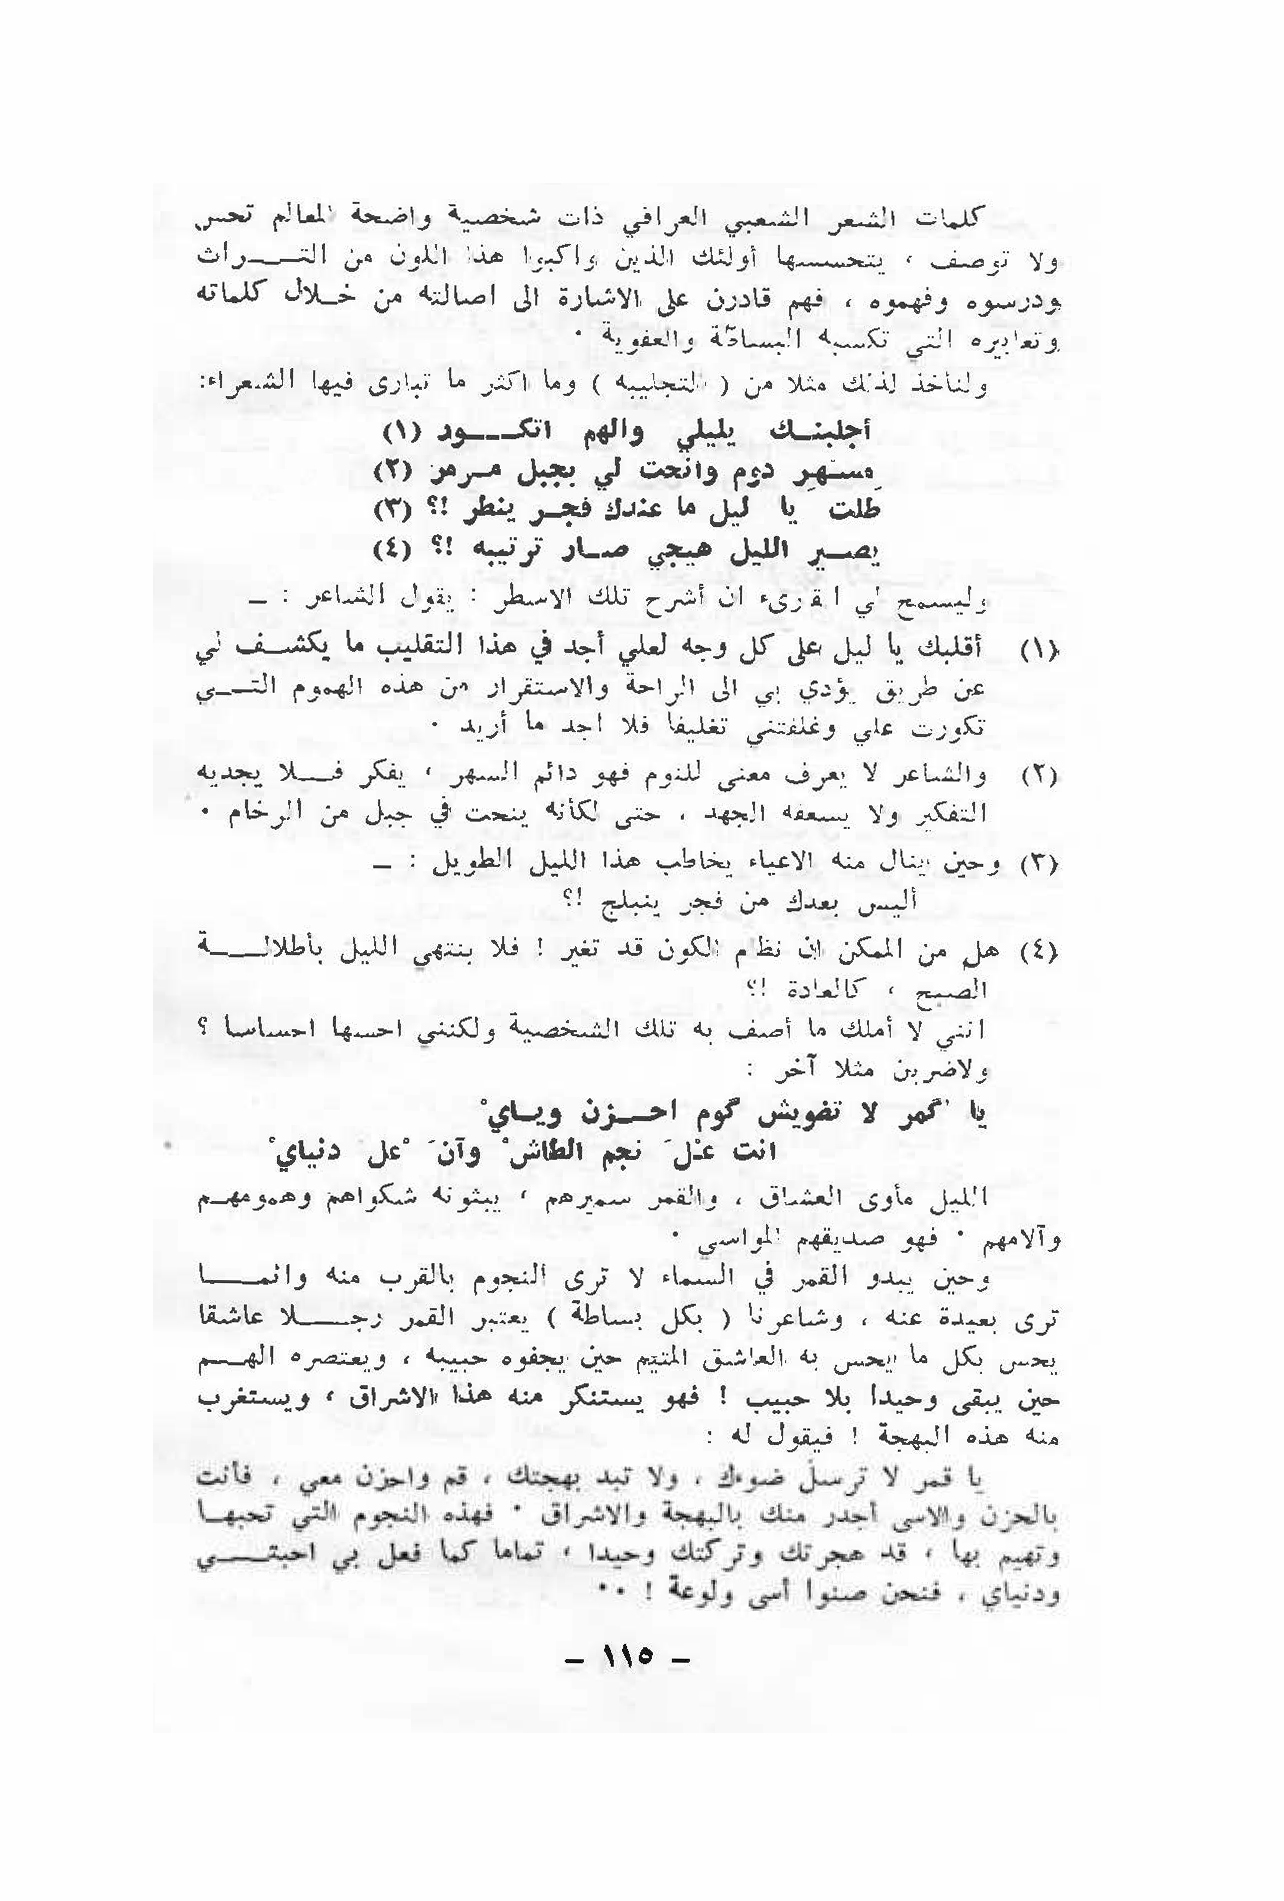 كلمات الشعر الشعبي العراقي ذات شخصية واضحة المعالم تحس
ولا توصف ، يتحسسها أولئك الذين واكبوا هذا اللون من التراث
ودرسوه وفهموه ، فهم قادرن على الاشارة الى اصالته من خلال كلماته
وتعابيره التي تكسبه البساطة والعفوية .
ولنأخذ لذلك مثلا من ( التجليبه ) وما اكثر ما تبارى فيها الشعراء:
أجلبنك يليلي والهم اتكور (١)
مسهر دوم وانحت لي بجبل مرمر (٢)
طلت يا ليل ما عندك فجر ينطر !؟ (٣)
يصير الليل هيجي صار ترتيبه !؟ (٤)
وليسمح لي القارىء ان أشرح تلك الاسطر : يقول الشاعر : ــ
(١) أقلبك يا ليل على كل وجه لعلي أجد في هذا التقليب ما يكشف لي
عن طريق يؤدي بي الى الراحة والاستقرار من هذه الهموم التي
تكورت علي وغلفتني تغليفا فلا اجد ما أريد .
(٢) والشاعر لا يعرف معنى للنوم فهو دائم السهر ، يفكر فلا يجديه
التفكير ولا يسعفه الجهد ، حتى لكأنه ينحت في جبل من الرخام .
(٣) وحين ينال منه الاعياء يخاطب هذا الليل الطويل : ــ
أليس بعدك من فجر ينبلج !؟
(٤) هل من الممكن ان نظام الكون قد تغير ! فلا ينتهي الليل بأطلالة
الصبح ، كالعادة !؟
انني لا أملك ما أصف به تلك الشخصية ولكنني احسها احساسا ؟
ولاضربن مثلا آخر :
يا گمر لا تضويش گوم احزن وياي ْ
انت عذلَ نجم الطاش ْ وآن َ ْعل دنياي ْ
الليل مأوى العشاق ، والقمر سميرهم ، يبثونه شكواهم وهمومهم
وآلامهم . فهو صديقهم المواسي .
وحين يبدو القمر في السماء لا ترى النجوم بالقرب منه وانما
ترى بعيدة عنه ، وشاعرنا ( بكل بساطة ) يعتبر القمر رجلا عاشقا
يحس بكل ما يحس به العاشق المتيم حين يجفوه حبيبه ، ويعتصره الهم
حين يبقى وحيدا بلا حبيب ! فهو يستنكر منه هذا الاشراق ، ويستغرب
منه هذه البهجة ! فيقول له :
يا قمر لا ترسل ضوءك ، ولا تبد بهجتك ، قم واحزن معي ، فأنت
بالحزن والاسى أجدر منك بالبهجة والاشراق . فهذه النجوم التي تحبها
وتهيم بها ، قد هجرتك وتركتك وحيدا ، تماما كما فعل بي احبتي
ودنياي ، فنحن صنوا أسى ولوعة ! ..
ــ ١١٥ ــ